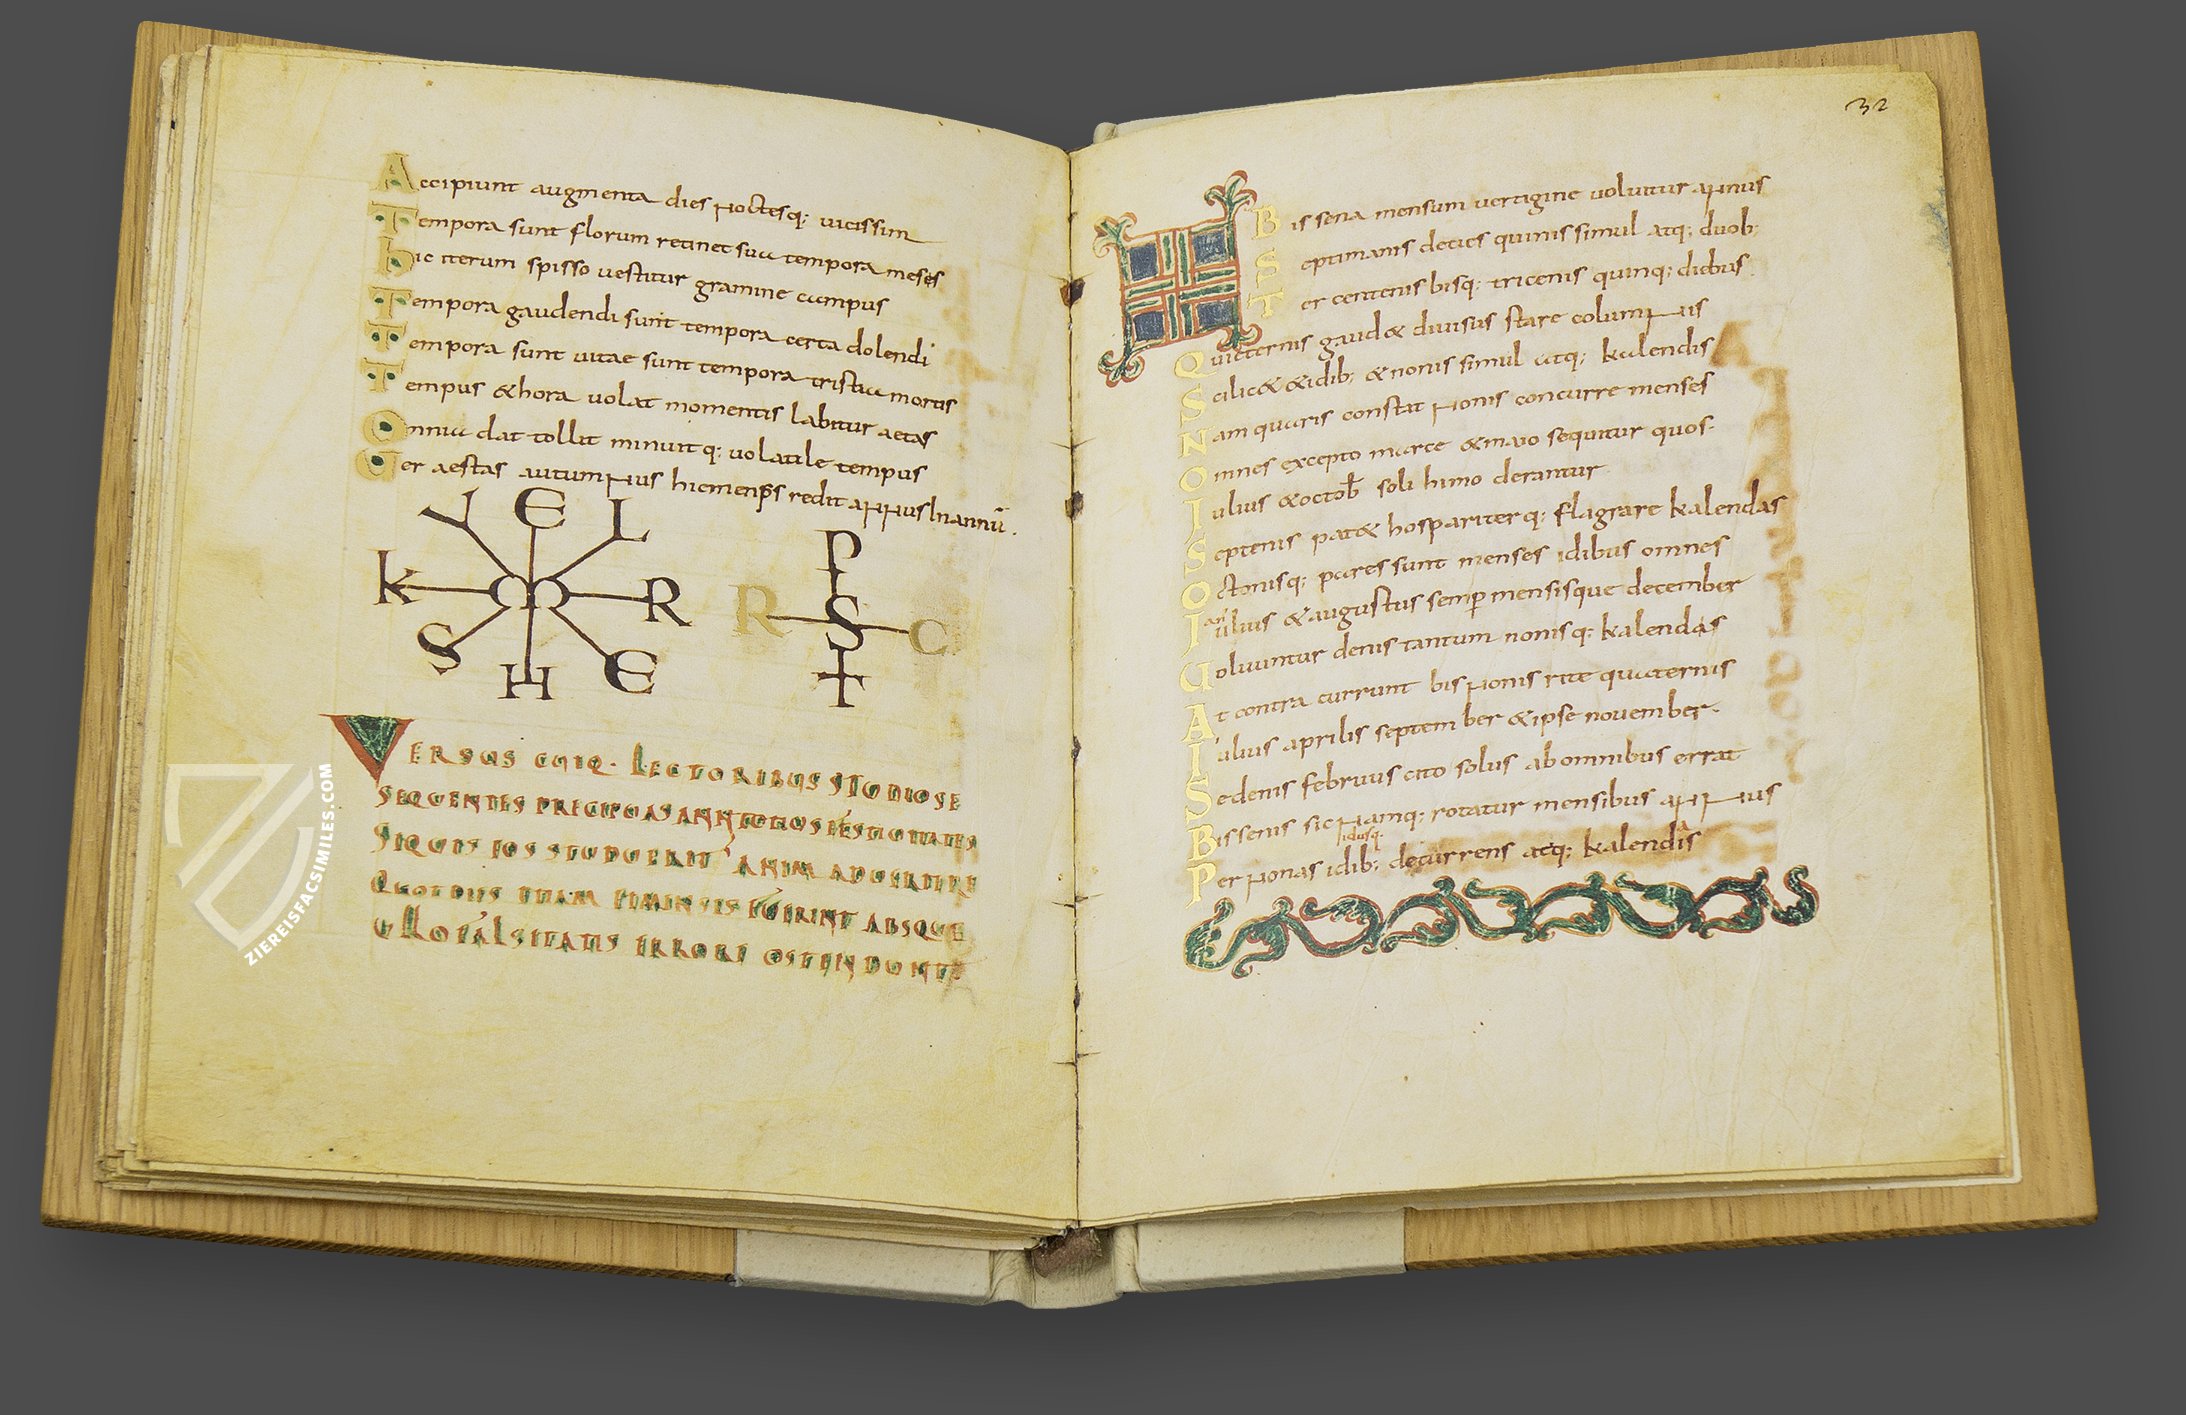 Accipiunt augmenta dies noctesq; vicissim
Tempora sunt florum retinet sua tempora meses
hic iterum spisso vestitur gramine campus
Tempora gaudendi sunt tempora certa dolendi
Tempora sunt vitae sunt tempora tristia mortis
Tempus & hora volat momentis labitur aetas
Omnia dat tollit minuitq; volatile tempus
Ver aestas autumnus hiemenps redit annus In annū.
V E L
K M R
S H E
P
R S C
T
VERSUS CUIQ. LECTORIBUS STUDIOSE
SEQUENTES PRECIPUAS ANNI
SI QUIS IOS STUDUERIT ANIM ADVERTERE
ABSQUE
FALSITATIS ERRORE OSTENDUNT
32
Bis sena mensum vertigine volvitur annus
Septimanis decies quinis simul atq; duob;
Ter centenis bisq; tricenis quinq; diebus
Quaternis gaud& divisus stare columnis
Scilic& & idib; & nonis simul atq; kalendis
Nam quaris constat nonis concurre menses
Omnes excepto marce & maio sequitur quos;
Iulius & octob̄ soli himo derantur
Septenis pat& hos pariterq; flagrare kalendas
Octonisq; pares sunt menses idibus omnes
Iulius & augustus semp mensisque december
Volvuntur denis tantum nonisq; kalendas
At contra currunt bis nonis rite quaternis
Iulius aprilis september & ipse november.
Sedenis februus cito solus ab omnibus errat
Bissenis sic namq; rotatur mensibus annus
idusq.
Per nonas idib; decurrens atq; kalendis
ZIEREISFACSIMILES.COM